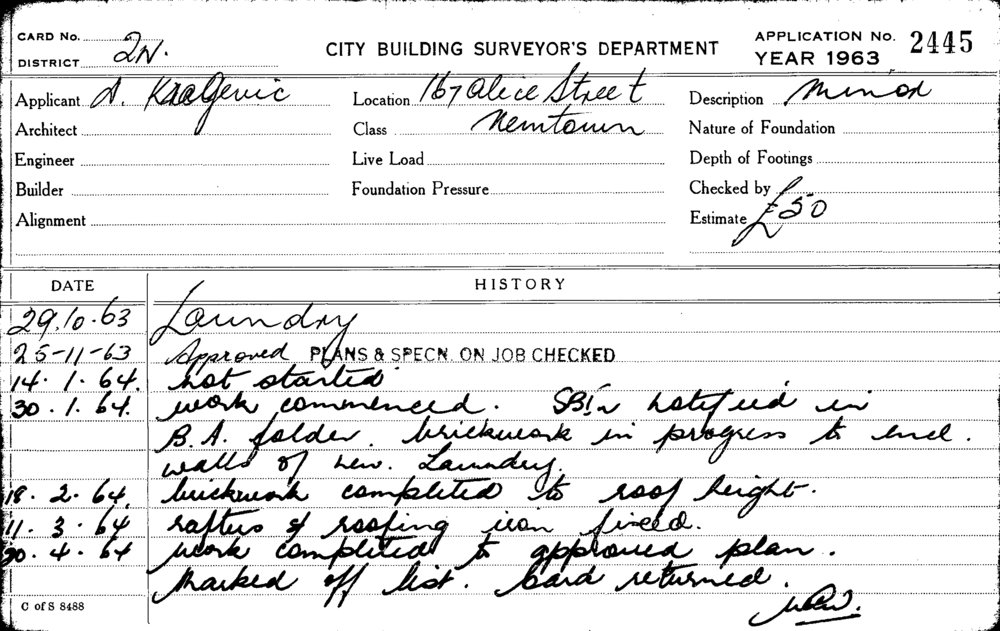 CARD No. 2N.
DISTRICT
CITY BUILDING SURVEYOR'S DEPARTMENT
APPLICATION No. 2445
YEAR 1963
Applicant A.
Location 167 Alice Street
Description Minor
Architect
Class Newtown
Nature of Foundation
Engineer
Live Load
Depth of Footings
Builder
Foundation Pressure
Checked by
Alignment
Estimate £50
DATE HISTORY
29.10.63 Laundry
25-11-63 Approved PLANS & SPECN. ON JOB CHECKED
14.1.64. not started
30.1.64. work commenced. notified in
B.A. folder. brickwork in progress to encl.
walls of new. Laundry.
18.2.64. brickwork completed to roof height.
11.3.64 rafters & roofing iron fixed.
20.4.64 work completed to approved plan.
Marked off list. Card returned.
C of S 8488